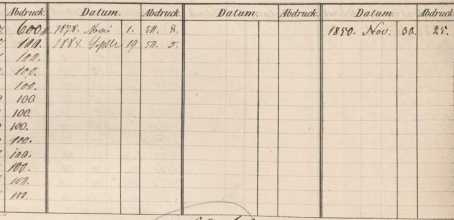 Abdruck. Datum. Abdruck. Datum. Abdruck. Datum. Abdruck.
600. 1878. Mai 1. 50. 8. 1850. Nov. 30. 25.
100. 1884. Septbr 19. 50. 5.
100.
100.
100.
100.
100.
100.
100.
100.
100.
100.
100.